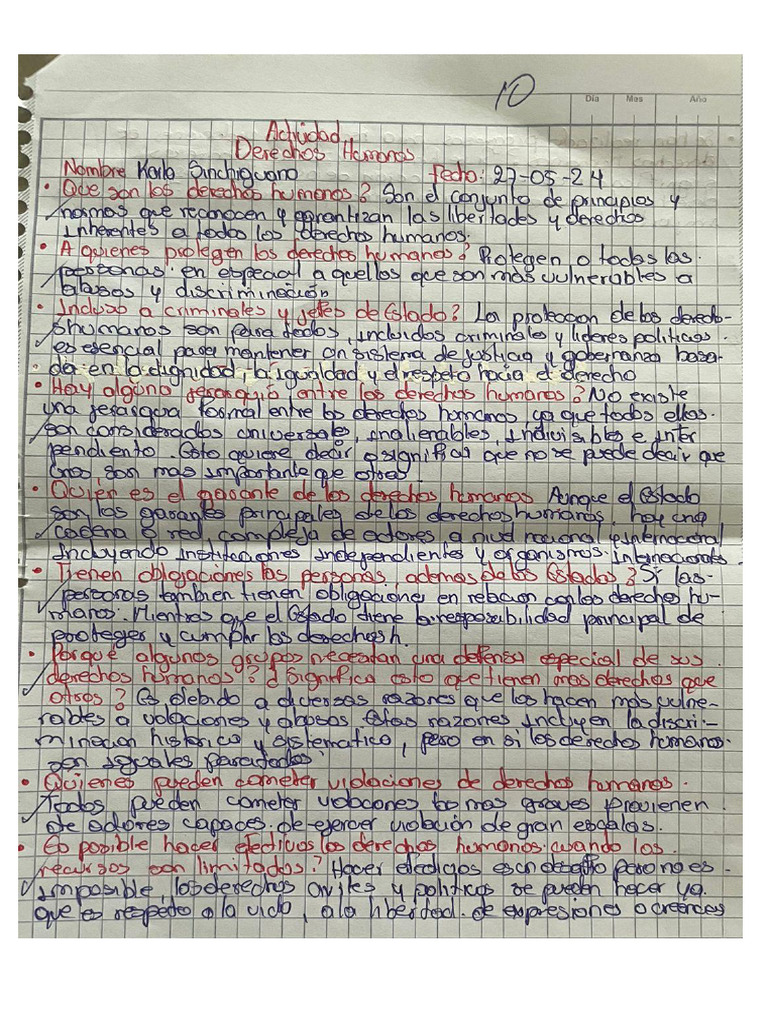 10
Día Mes Año
Actividad
Derechos Humanos
Nombre Karla Sinchiguano fecha: 27-05-24
• Que son los derechos humanos? Son el conjunto de principios y
normas que reconocen y garantizan las libertades y derechos
inherentes a todos los derechos humanos.
• A quienes protegen los derechos humanos? Protegen a todas las
personas. en especial a aquellos que son mas vulnerables a
abusos y discriminación
• Incluso a criminales y jefes de Estado? La proteccion de los derecho-
shumanos son para todos, incluidos criminales y lideres politicos.
es esencial para mantener un sistema de justicia y gobernanza basa-
da en la dignidad, la igualdad y el respeto hacia el derecho
• Hay alguna jerarquia entre los derechos humanos? No existe
una jerarquia formal entre los derechos humanos, ya que todos ellos.
son considerados universales, inalienables, indivisibles e inter
pendiente. Esto quiere decir o significa que no se puede decir que
unos son mas importante que otros.
• Quién es el garante de los derechos humanos Aunque el Estado
son los garantes principales de los derechos humanos, hay una
cadena o red compleja de actores a nivel nacional e internacional
Incluyendo instituciones independientes y organismos. Internacionales.
• Tienen obligaciones las personas, ademas de los Estados? Si las
personas tambien tienen obligaciones en relacion con los derechos hu-
manos. Mientras que el Estado tiene la responsibilidad principal de
proteger y cumplir los derechos h.
• Porqué algunos grupos necesitan una defensa especial de sus
derechos humanos? ¿Significa esto que tienen mas derechos que
otros? Es debido a diversas razones que los hacen más vulne-
rables a volaciones y abusos. Estas razones incluyen la discri-
minacion historica y sistematica, pero en si los derechos humanos.
son iguales para todos.
• Quienes pueden cometer violaciones de derechos humanos.
Todos pueden cometer volaciones lo mas graves provienen
de actores capaces de ejercer violación de gran escalas.
• Es posible hacer efectivos los derechos humanos cuando los
recursos son limitados? Hacer efectivos es un desafio pero no es
imposible, los derechos civiles y politicos se pueden hacer ya
que es respeto a la vida, a la libertad. de expresiones o creencias